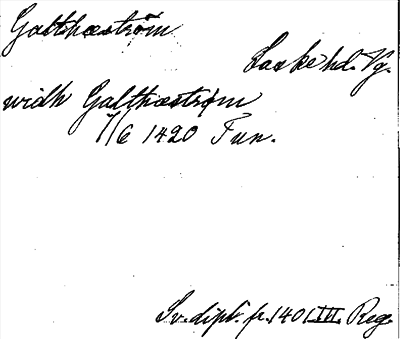 Galthæström
Laske hd. Vg.
widh Galthæstrøm
7/6 1420 Fun.
Sv. dipl. fr. 1401 III. Reg.